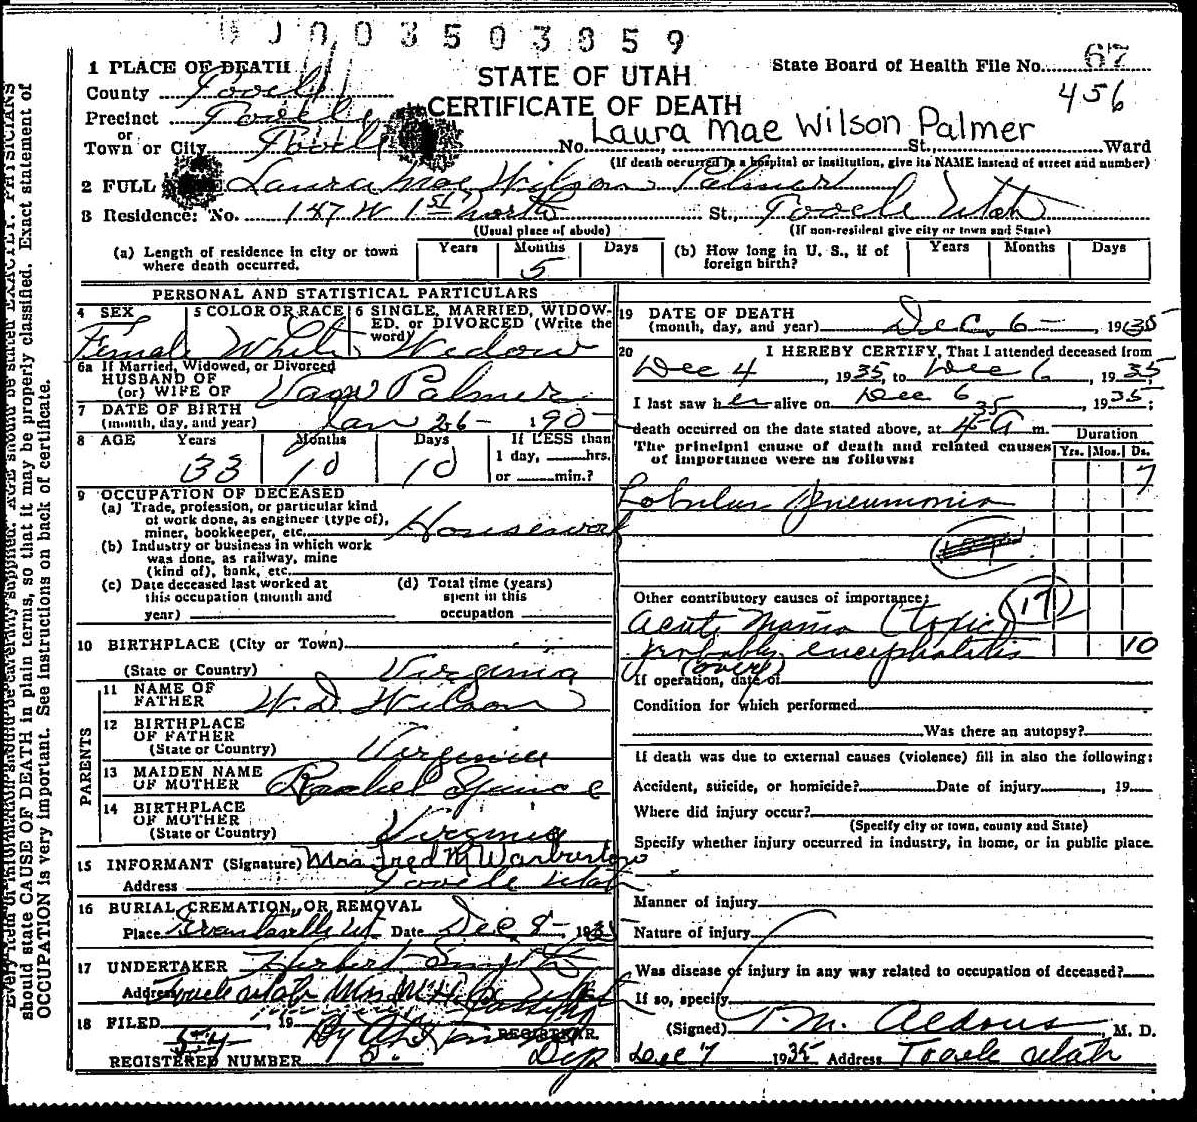 003503859
1 PLACE OF DEATH
County Tooele
Precinct Tooele
or
Town or City Tooele
STATE OF UTAH
CERTIFICATE OF DEATH
State Board of Health File No. 67
456
No. Laura Mae Wilson Palmer St., Ward
(If death occurred in a hospital or institution, give its NAME instead of street and number)
2 FULL Laura Mae Wilson Palmer
3 Residence: No. 147 W 1st North St., Tooele Utah
(Usual place of abode) (If non-resident give city or town and State)
(a) Length of residence in city or town where death occurred. Years Months 5 Days
(b) How long in U. S., if of foreign birth? Years Months Days
PERSONAL AND STATISTICAL PARTICULARS
4 SEX Female
5 COLOR OR RACE White
6 SINGLE, MARRIED, WIDOWED, or DIVORCED (Write the word) Widow
6a If Married, Widowed, or Divorced
HUSBAND OF
(or) WIFE OF Palmer
7 DATE OF BIRTH
(month, day, and year) Jan 26- 190
8 AGE Years 33 Months 10 Days 10 If LESS than 1 day, hrs. or min.?
9 OCCUPATION OF DECEASED
(a) Trade, profession, or particular kind of work done, as engineer (type of), miner, bookkeeper, etc. Housework
(b) Industry or business in which work was done, as railway, mine (kind of), bank, etc.
(c) Date deceased last worked at this occupation (month and year)
(d) Total time (years) spent in this occupation
10 BIRTHPLACE (City or Town)
(State or Country) Virginia
PARENTS
11 NAME OF FATHER W. D. Wilson
12 BIRTHPLACE OF FATHER
(State or Country) Virginia
13 MAIDEN NAME OF MOTHER Rachel
14 BIRTHPLACE OF MOTHER
(State or Country) Virginia
15 INFORMANT (Signature) Mrs Fred M Warburton
Address Tooele Utah
16 BURIAL, CREMATION, OR REMOVAL
Place Grantsville Ut Date Dec 8- 1935
17 UNDERTAKER Herbert Smith
Address Tooele Utah
18 FILED , 19 REGISTRAR
By Dep
REGISTERED NUMBER 5
19 DATE OF DEATH
(month, day, and year) Dec. 6- 1935
20 I HEREBY CERTIFY, That I attended deceased from
Dec 4, 1935, to Dec 6, 1935,
I last saw her alive on Dec 6 35, 1935;
death occurred on the date stated above, at 4 A m.
The principal cause of death and related causes of importance were as follows:
Duration
Yrs. Mos. Ds.
7
Lobular Pneumonia
Other contributory causes of importance: 17
Acute Mania (toxic)
probably encephalitis 10
(over)
If operation, date of
Condition for which performed
Was there an autopsy?
If death was due to external causes (violence) fill in also the following:
Accident, suicide, or homicide? Date of injury , 19
Where did injury occur?
(Specify city or town, county and State)
Specify whether injury occurred in industry, in home, or in public place.
Manner of injury
Nature of injury
Was disease of injury in any way related to occupation of deceased?
If so, specify
(Signed) T. M. Aldous, M. D.
Dec 7 1935 Address Tooele Utah
should state CAUSE OF DEATH in plain terms, so that it may be properly classified. Exact statement of
OCCUPATION is very important. See instructions on back of certificate.